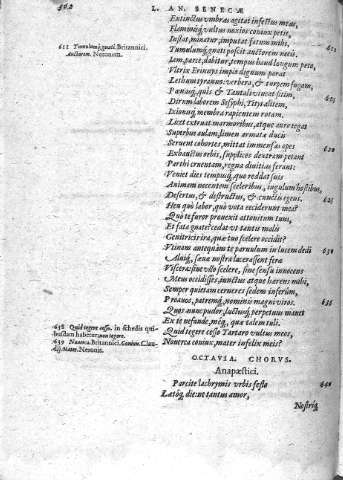 502
L. AN. SENECÆ
Extinctus umbras agitat infestus meas,
Flammisq́; vultus noxios coniux petit,
Instat, minatur, imputat fatum mihi,
Tumulumq́; gnati poscit auctorem necis.
611
Iam, parce, dabitur, tempus haud longum peto.
Vltrix Erinnys impio dignum parat
Lethum tyranno: verbera, & turpem fugam,
Pœnasq́; quîs & Tantali vincat sitim,
615
Dirum laborem Sisyphi, Tityi alitem,
Ixionisq́; membra rapientem rotam.
Licet extruat marmoribus, atque auro tegat
Superbus aulam, limen armatæ ducis
Seruent cohortes, mittat immensas opes
620
Exhaustus orbis, supplices dextram petant
Parthi cruentam, regna diuitias ferant:
Veniet dies tempusq́; quo reddat suis
Animam nocentem sceleribus, iugulum hostibus,
Desertus, & destructus, & cunctis egens.
625
Heu quò labor, quò vota ceciderunt mea?
Quò te furor prouexit attonitum tuus,
Et fata gnate? cedat vt tantis malis
Genitricis ira, quæ tuo scelere occidit?
Vtinam antequàm te paruulum in lucem dedi
630
Aluiq́; sæuæ nostra lacerassent feræ
Viscera: sine vllo scelere, sine sensu innocens
Meus occidisses, iunctus atque hærens mihi,
Semper quietam cerneres sedem inferûm,
Proauos, patremq́; nominis magni viros.
635
Quos nunc pudor, luctusq́; perpetuus manet
Ex te nefande, méq́; quæ talem tuli.
Quid tegere cesso Tartaro vultus meos,
Nouerca coniux, mater infelix meis?
OCTAVIA. CHORVS.
Anapæstici.
Parcite lachrymis vrbis festo
640
Lætóq́; die: ut tantus amor,
Nostriq́;
611 Tumulumq́; gnati. Britannici.
Auctorem. Neronem.
638 Quid tegere cesso. in schedis qui-
busdam habetur
639 Nouerca. Britannici. Coniux. Clau-
dij. Mater. Neronis.